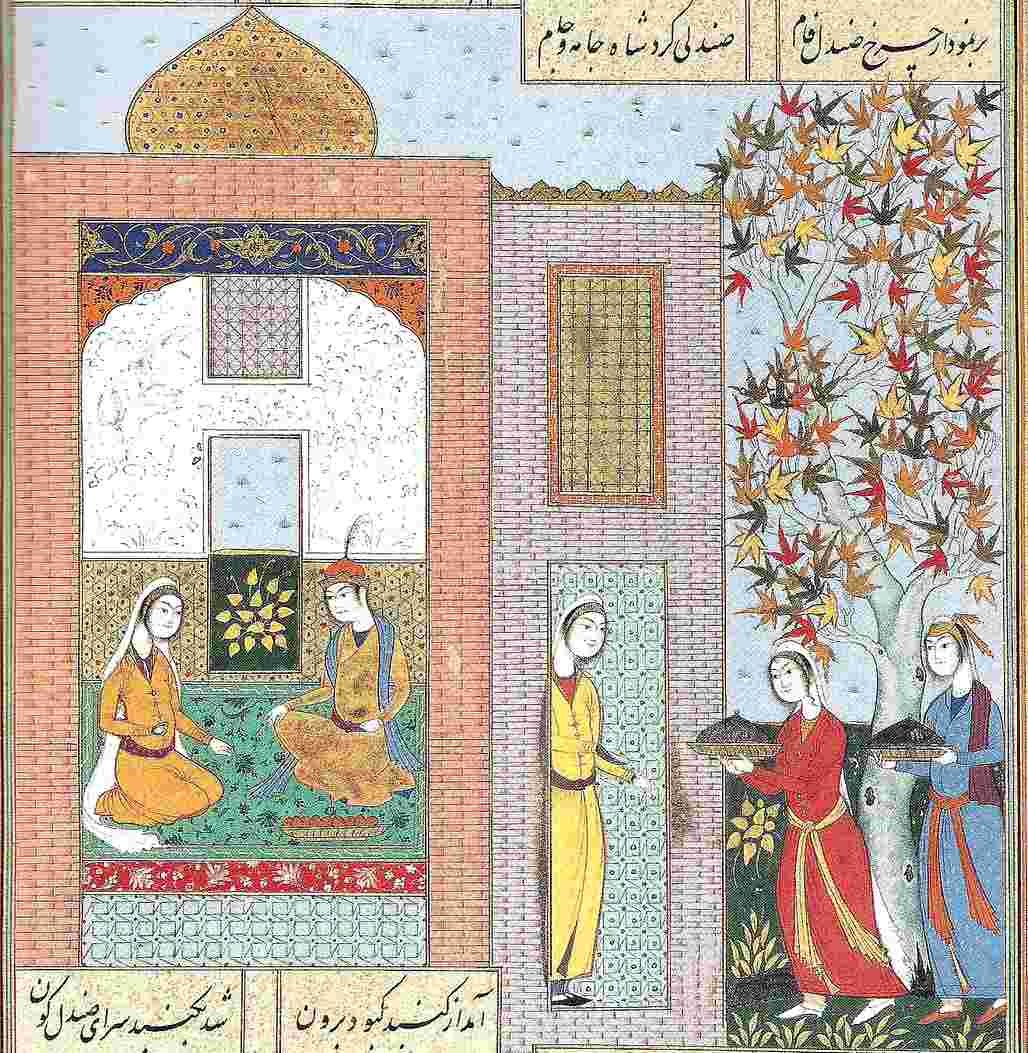 بر نمودار چرخ صندل فام صندلی کرد شاه جامه و جام
آمد از گنبد کبود برون شد به گنبد سرای صندل گون